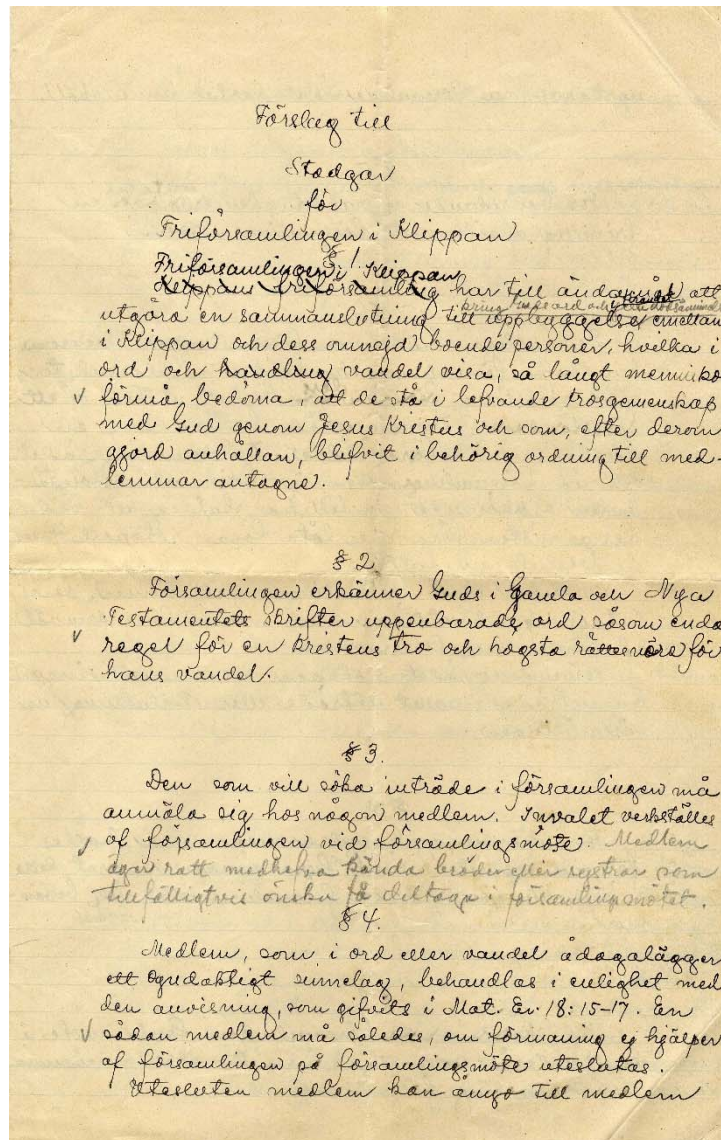 Förslag till
Stadgar
för
Friförsamlingen i Klippan
§ 1
Friförsamlingen i Klippan
Klippans friförsamling har till ändamål att
kring ord och
utgöra en sammanslutning till uppbyggelse emellan
i Klippan och dess omnejd boende personer, hvilka i
ord och handling vandel visa, så langt mennisko
förmå bedöma, att de stå i lefvande trosgemenskap
med Gud genom Jesus Kristus och som, efter derom
gjord anhållan, blifvit i behörig ordning till med-
lemmar antagne.
§ 2
Församlingen erkänner Guds i Gamla och Nya
Testamentets skrifter uppenbarade ord såsom enda
regel för en Kristens tro och högsta rättesnöre för
hans vandel.
§ 3.
Den som vill söka inträde i församlingen må
anmäla sig hos någon medlem. Invalet verkställes
af församlingen vid församlingsmöte. Medlem
äger rätt medhafva kända bröder eller systrar som
tillfälligtvis önska få deltaga i församlingsmötet.
§ 4.
Medlem, som i ord eller vandel ådagalägger
ett ogudaktigt sinnelag, behandlas i enlighet med
den anvisning, som gifvits i Mat. Ev. 18:15-17. En
sådan medlem må således, om förmaning ej hjälper
af församlingen på församlingsmöte uteslutas.
Utesluten medlem kan ånyo till medlem